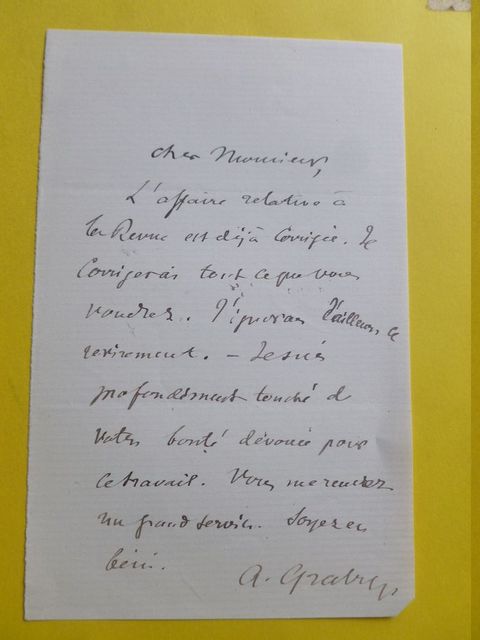 cher Monsieur,
L'affaire relative à
la Revue est déjà corrigée. Je
corrigerai tout ce que vous
voudrez. J'ignorais d'ailleurs ce
revirement. – Je suis
profondément touché de
votre bonté dévouée pour
ce travail. Vous me rendez
un grand service. Soyez en
béni.
A.